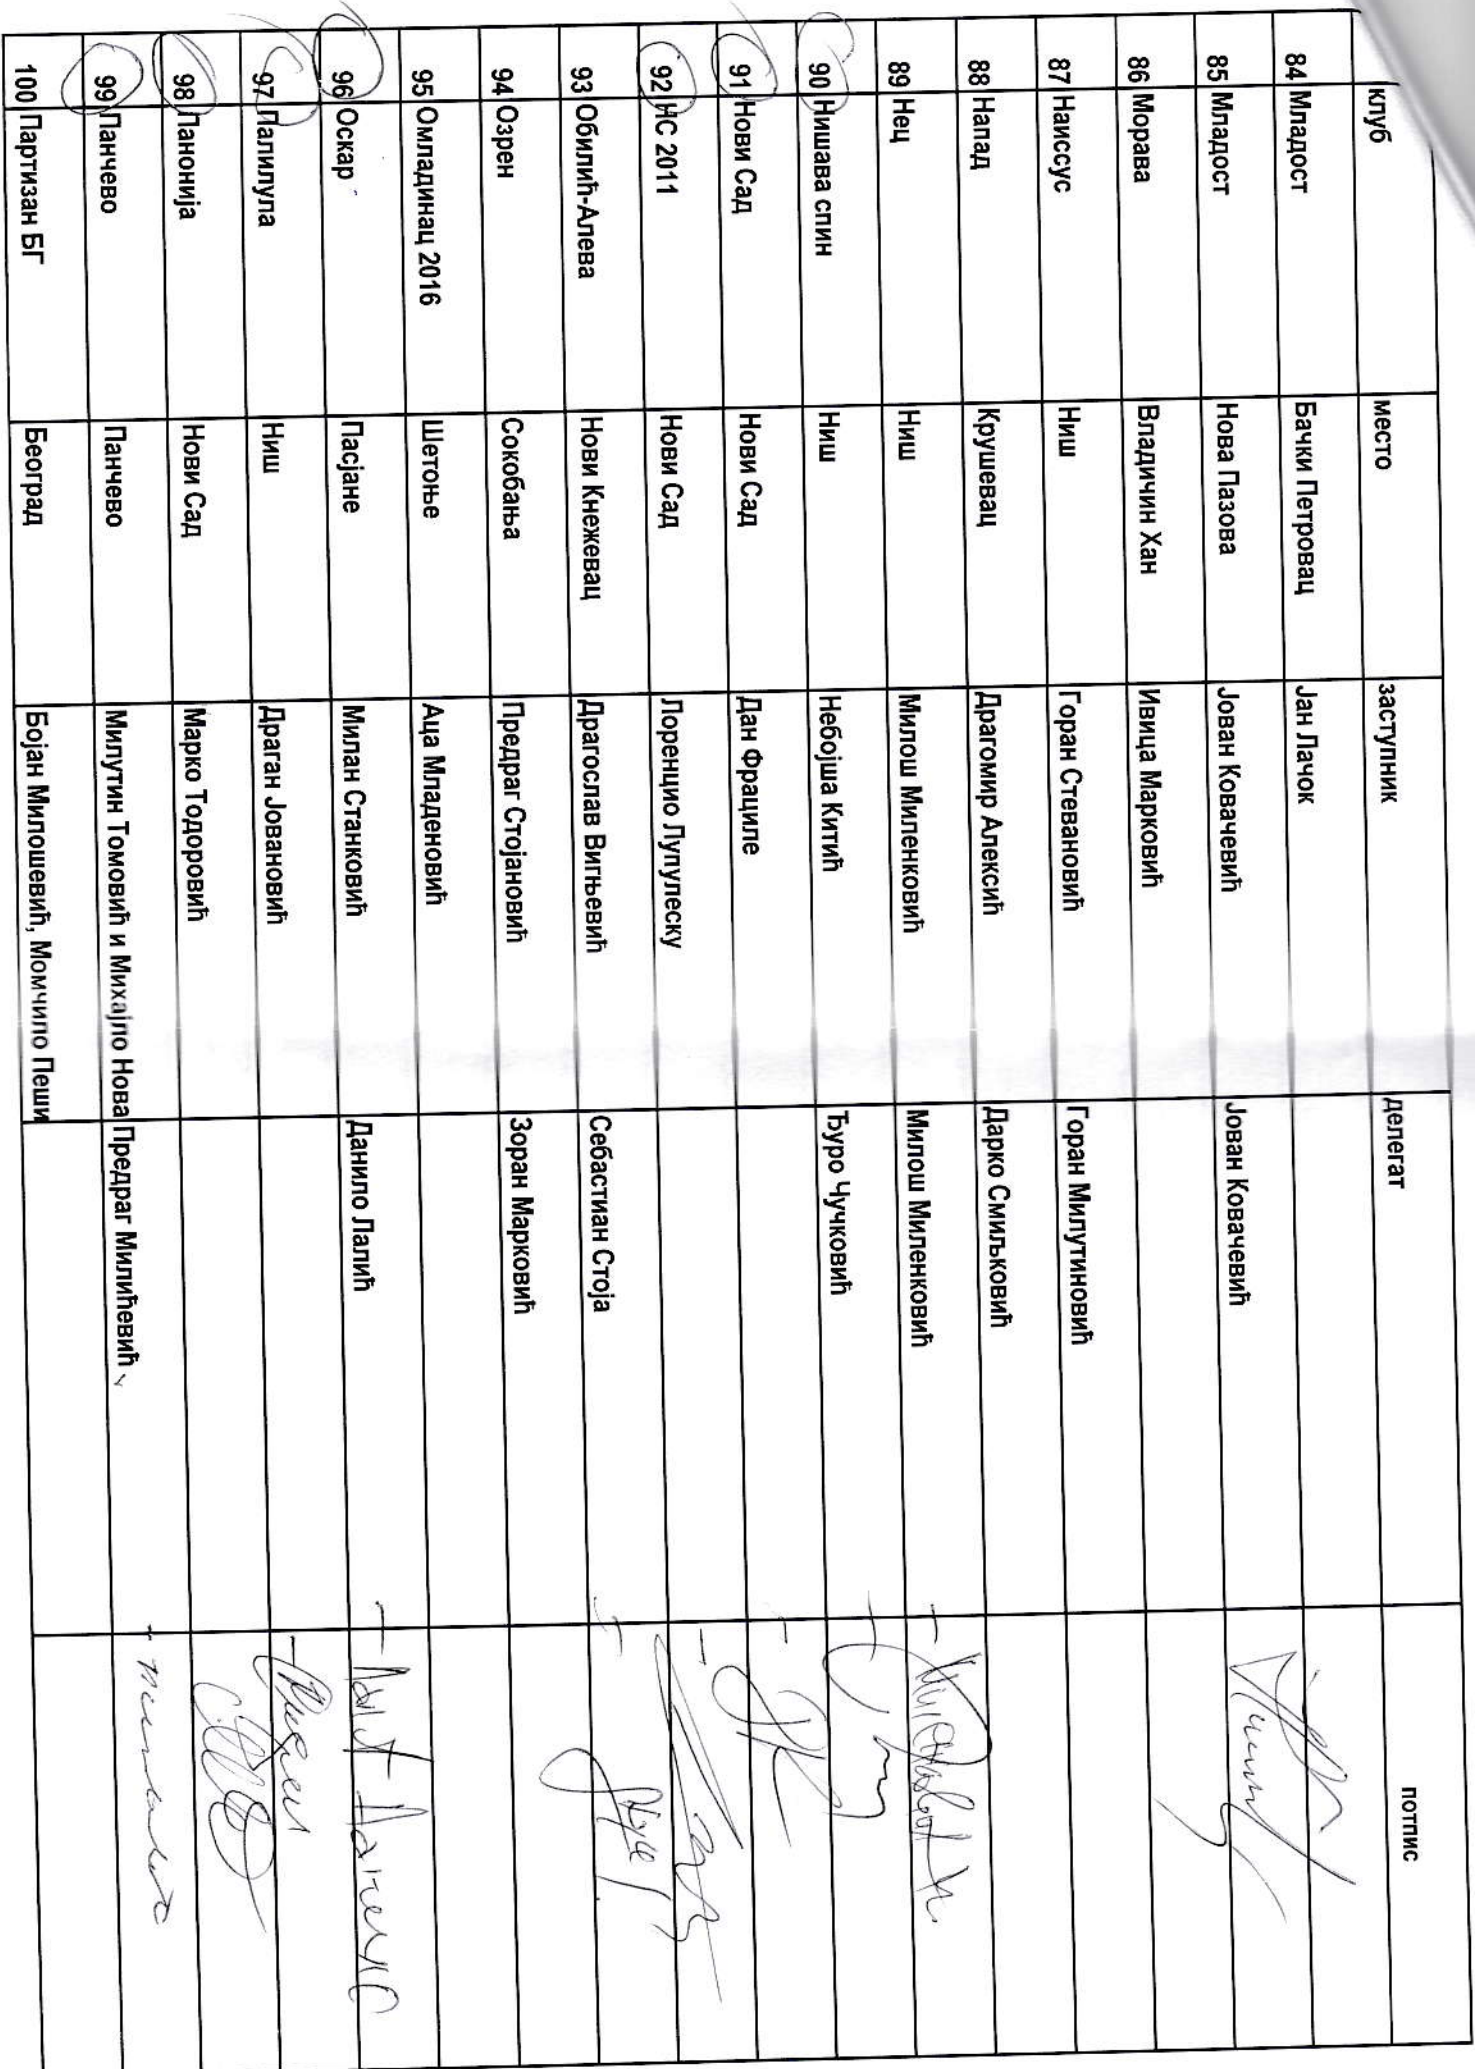 клуб место заступник делегат потпис
84 Младост Бачки Петровац Јан Лачок
85 Младост Нова Пазова Јован Ковачевић Јован Ковачевић
86 Морава Владичин Хан Ивица Марковић
87 Наиссус Ниш Горан Стевановић Горан Милутиновић
88 Напад Крушевац Драгомир Алексић Дарко Смиљковић
89 Нец Ниш Милош Миленковић Милош Миленковић
90 Нишава спин Ниш Небојша Китић Ђуро Чучковић
91 Нови Сад Нови Сад Дан Фрациле
92 НС 2011 Нови Сад Лоренцио Лупулеску
93 Обилић-Алева Нови Кнежевац Драгослав Вигњевић Себастиан Стоја
94 Озрен Сокобања Предраг Стојановић Зоран Марковић
95 Омладинац 2016 Шетоње Аца Младеновић
96 Оскар Пасјане Милан Станковић Данило Лалић
97 Палилула Ниш Драган Јовановић
98 Панонија Нови Сад Марко Тодоровић
99 Панчево Панчево Милутин Томовић и Михајло Нова Предраг Милићевић
100 Партизан БГ Београд Бојан Милошевић, Момчило Пеши